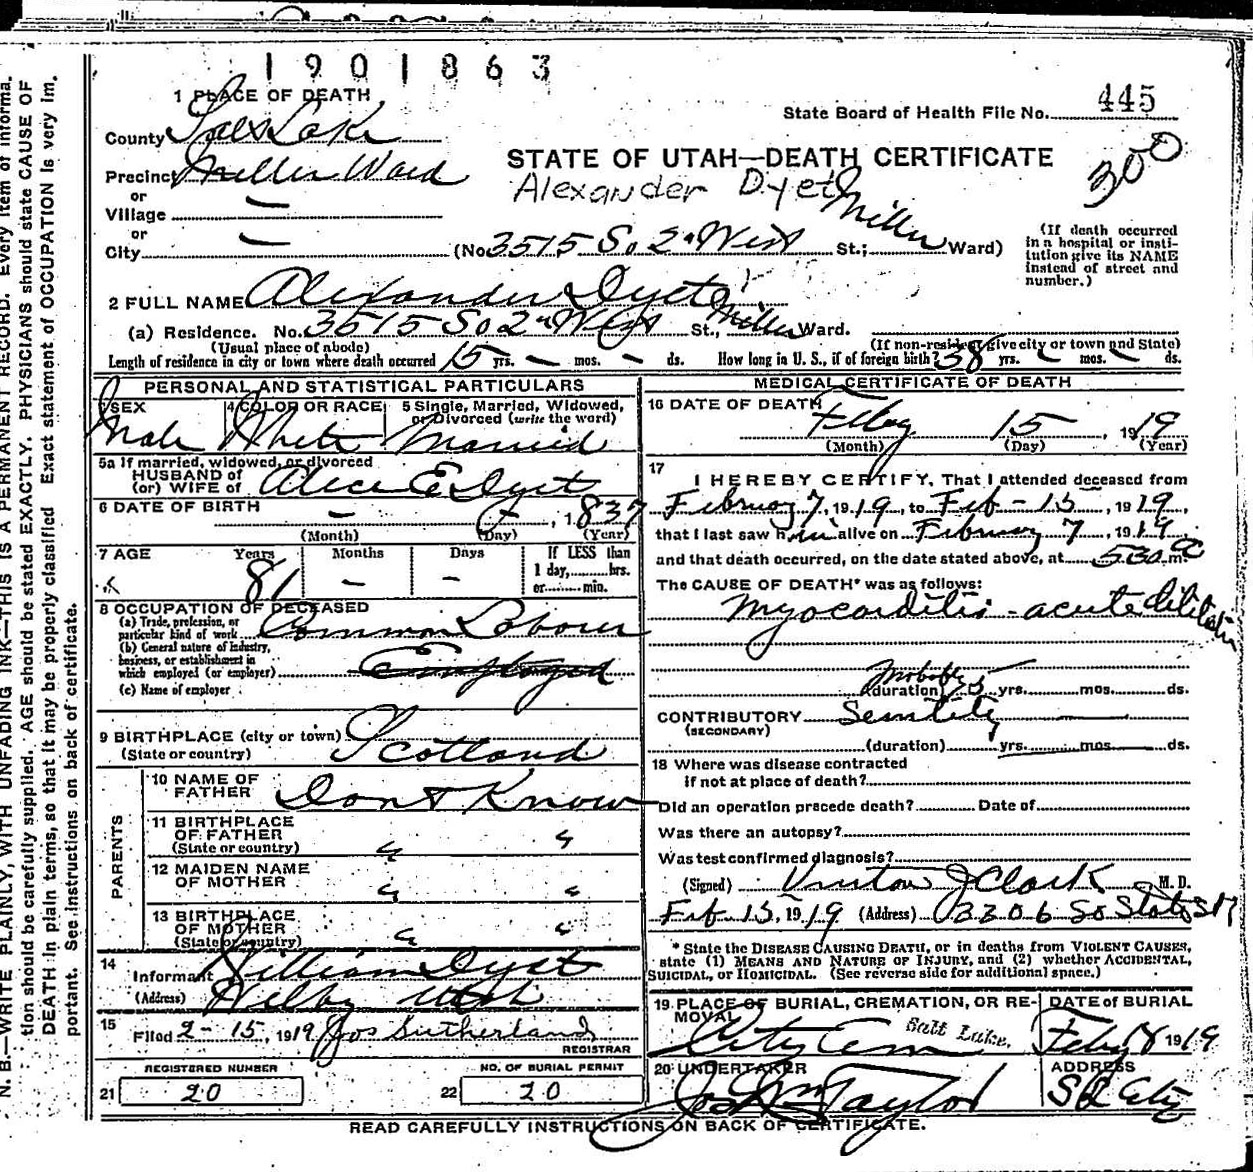 1901863
1 PLACE OF DEATH
State Board of Health File No. 445
County Salt Lake
STATE OF UTAH—DEATH CERTIFICATE
300
Precinct Miller Ward
Alexander Dyet
or
Village —
or
City — (No 3515 So 2nd West St.; Miller Ward)
(If death occurred in a hospital or insti-
tution give its NAME
instead of street and
number.)
2 FULL NAME Alexander Dyet
(a) Residence. No. 3515 So 2nd West St., Miller Ward.
(Usual place of abode) (If non-resident give city or town and State)
Length of residence in city or town where death occurred 15 yrs. — mos. — ds. How long in U. S., if of foreign birth? 38 yrs. — mos. — ds.
PERSONAL AND STATISTICAL PARTICULARS
3 SEX 4 COLOR OR RACE 5 Single, Married, Widowed,
or Divorced (write the word)
Male White Married
5a If married, widowed, or divorced
HUSBAND of
(or) WIFE of Alice E Dyet
6 DATE OF BIRTH — , 1837
(Month) (Day) (Year)
7 AGE Years Months Days If LESS than
1 day,........hrs.
or........min.
81 — —
8 OCCUPATION OF DECEASED
(a) Trade, profession, or
particular kind of work Common Labourer
(b) General nature of industry,
business, or establishment in
which employed (or employer) Employed
(c) Name of employer
9 BIRTHPLACE (city or town)
(State or country) Scotland
PARENTS
10 NAME OF
FATHER Dont Know
11 BIRTHPLACE
OF FATHER
(State or country) " "
12 MAIDEN NAME
OF MOTHER " "
13 BIRTHPLACE
OF MOTHER
(State or country) " "
14
Informant William Dyet
(Address) Welby Utah
15
Filed 2-15, 1919 Jos Sutherland
REGISTRAR
REGISTERED NUMBER NO. OF BURIAL PERMIT
21 20 22 20
MEDICAL CERTIFICATE OF DEATH
16 DATE OF DEATH
Feby 15, 1919
(Month) (Day) (Year)
17
I HEREBY CERTIFY, That I attended deceased from
February 7, 1919, to Feb - 15, 1919,
that I last saw him alive on February 7, 1919
and that death occurred, on the date stated above, at 5:30 a m.
The CAUSE OF DEATH* was as follows:
Myocarditis - acute dilitation
Probably
(duration) 5 yrs.........mos.........ds.
CONTRIBUTORY Senility
(SECONDARY)
(duration)........yrs.........mos.........ds.
18 Where was disease contracted
if not at place of death?
Did an operation precede death?.......... Date of
Was there an autopsy?
Was test confirmed diagnosis?
(Signed) Vinton J Clark M. D.
Feb 15, 1919 (Address) 3306 So State St
* State the DISEASE CAUSING DEATH, or in deaths from VIOLENT CAUSES,
state (1) MEANS AND NATURE OF INJURY, and (2) whether ACCIDENTAL,
SUICIDAL, or HOMICIDAL. (See reverse side for additional space.)
19 PLACE OF BURIAL, CREMATION, OR RE-
MOVAL DATE of BURIAL
City Cem Salt Lake. Feby 18 1919
20 UNDERTAKER ADDRESS
Jos Wm Taylor S L City
READ CAREFULLY INSTRUCTIONS ON BACK OF CERTIFICATE.
N. B.—WRITE PLAINLY, WITH UNFADING INK—THIS IS A PERMANENT RECORD. Every item of informa-
tion should be carefully supplied. AGE should be stated EXACTLY. PHYSICIANS should state CAUSE OF
DEATH in plain terms, so that it may be properly classified. Exact statement of OCCUPATION is very im-
portant. See instructions on back of certificate.